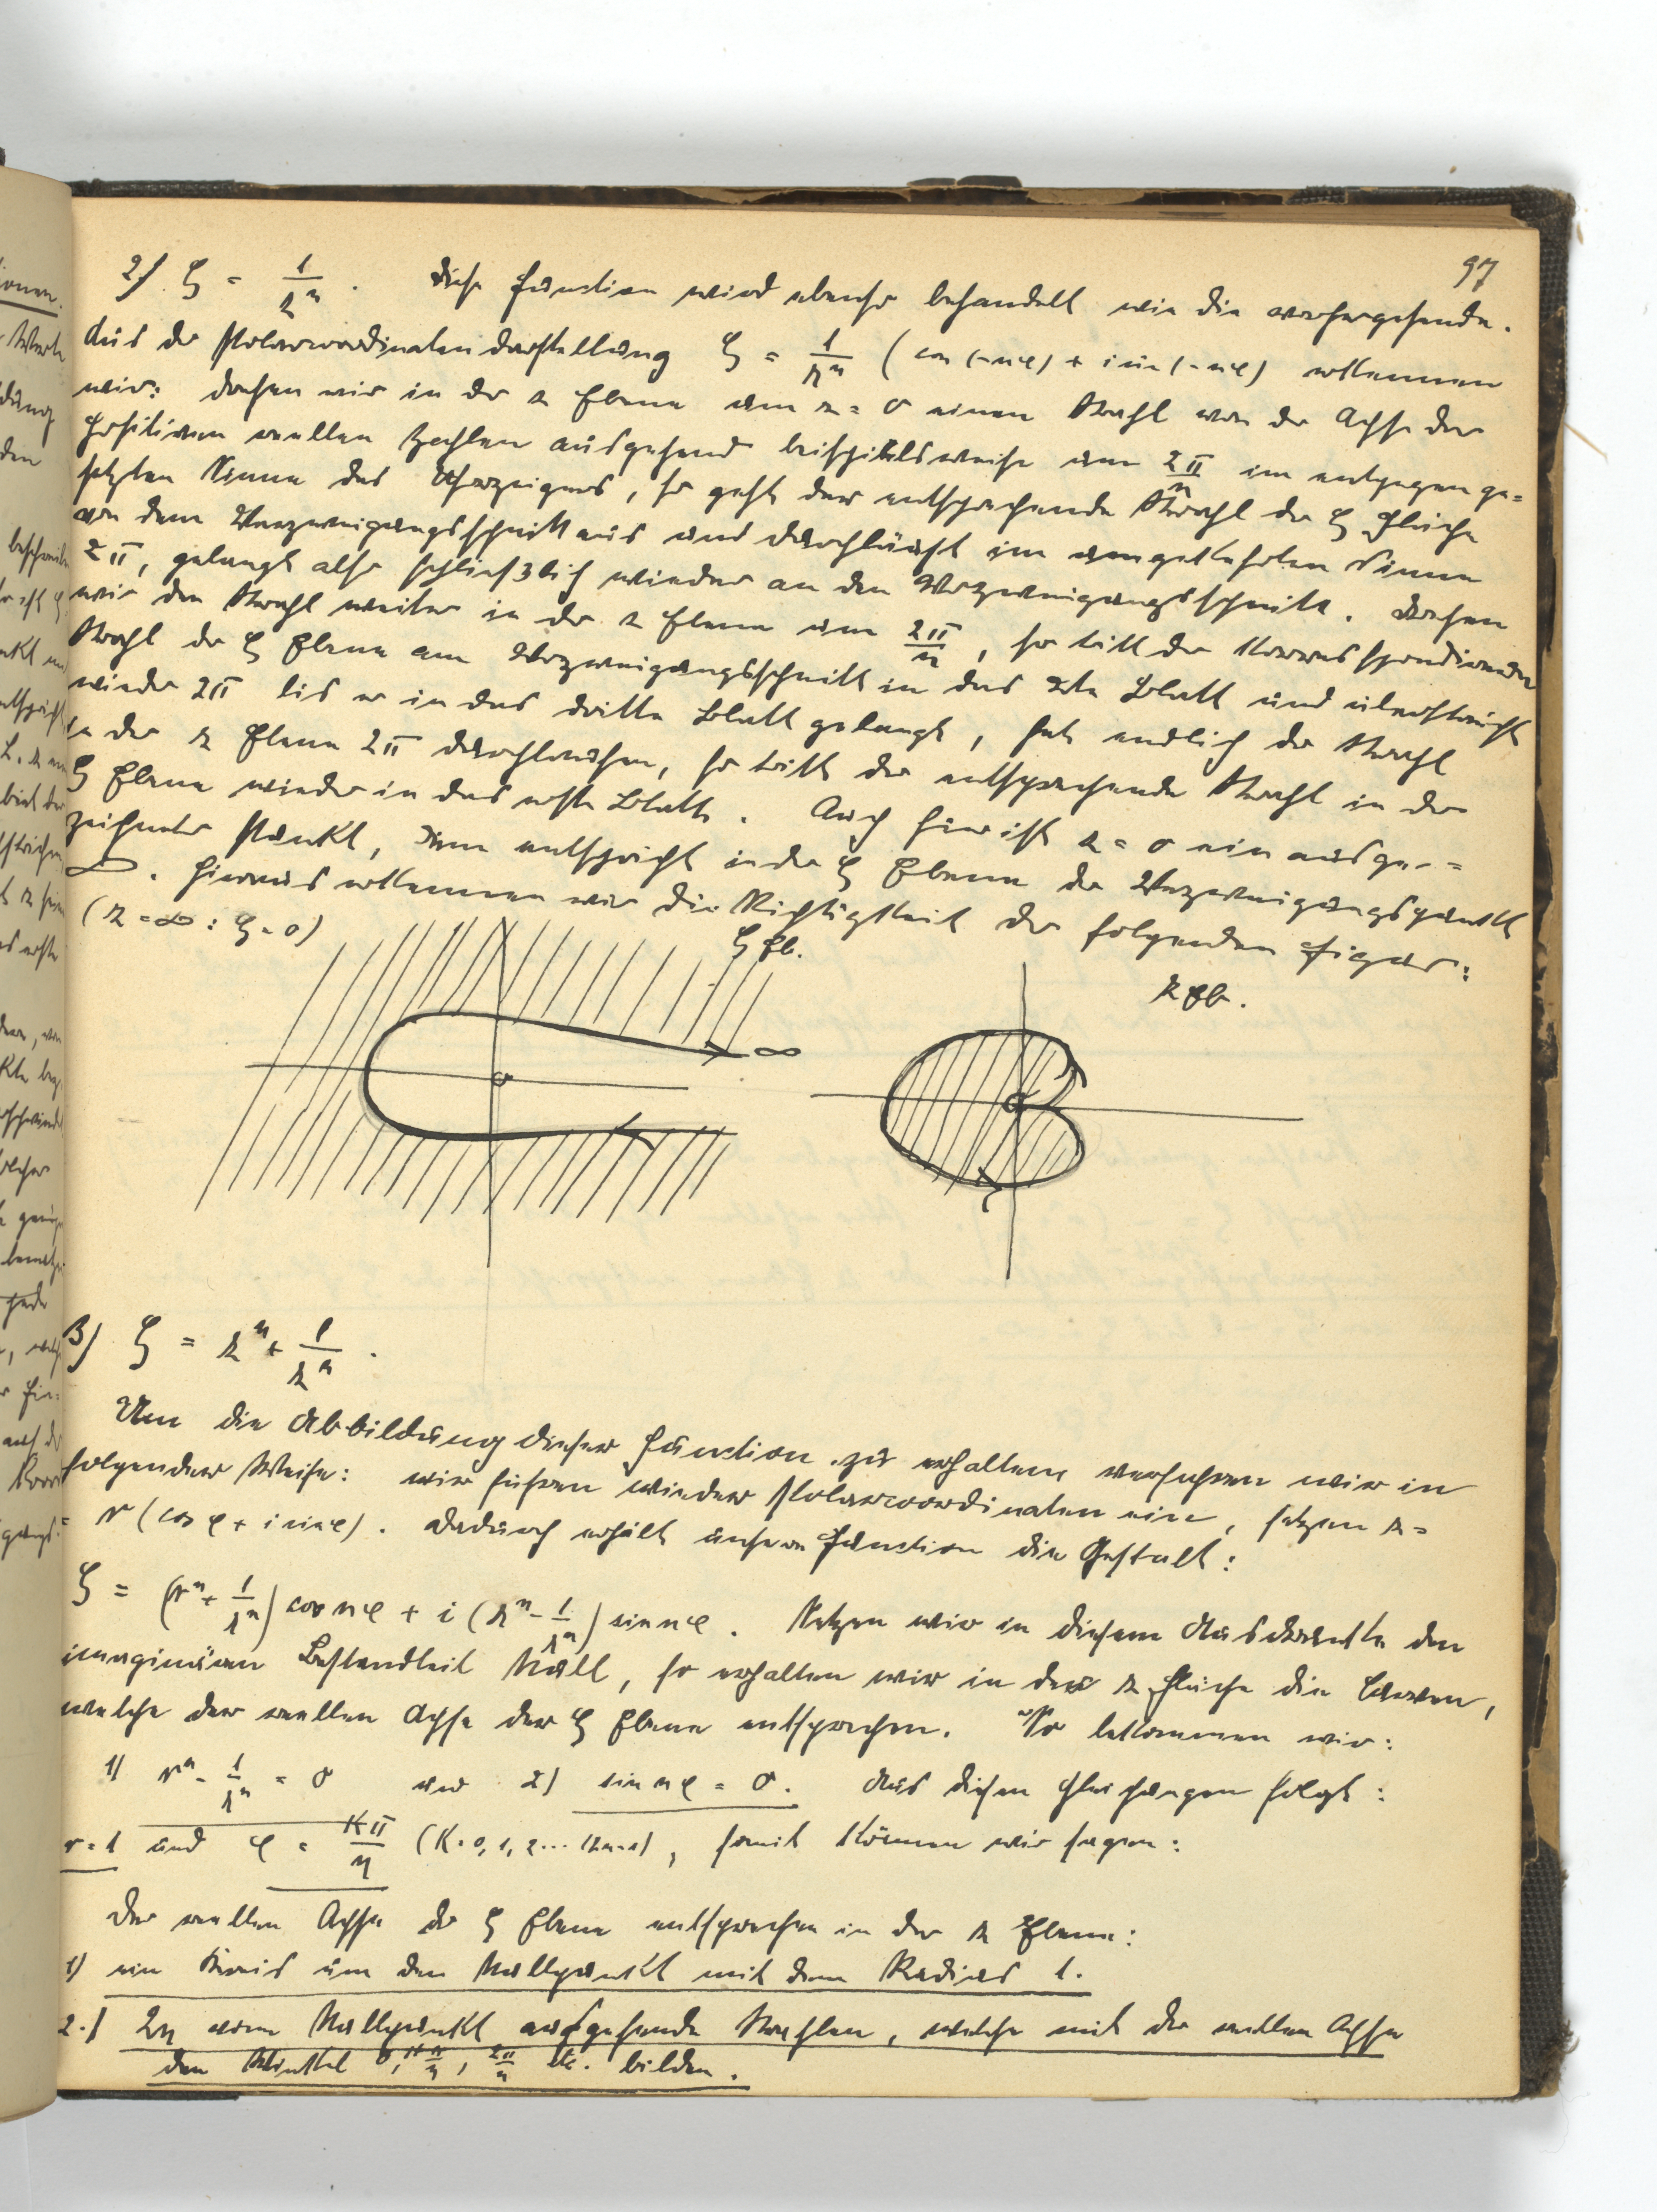 97
2) ζ = 1/zⁿ . Diese Function wird ebenso behandelt wie die vorhergehende.
Aus der Polarcoordinatendarstellung ζ = 1/rⁿ (cos(-nφ) + i sin(-nφ) erkennen
wir: drehen wir in der z Ebene um z = 0 einen Strahl von der Achse der
positiven reellen Zahlen ausgehend beispielsweise um 2π/n im entgegenge=
setzten Sinne des Uhrzeigers, so geht der entsprechende Strahl der ζ Fläche
von dem Verzweigungsschnitt aus und durchläuft im umgekehrten Sinne
2π, gelangt also schliesslich wieder an den Verzweigungsschnitt. Drehen
wir den Strahl weiter in der z Ebene um 2π/n, so tritt der korrespondierende
Strahl der ζ Ebene am Verzweigungsschnitt in das 2te Blatt und überstreicht
wieder 2π bis er in das dritte Blatt gelangt, hat endlich der Strahl
in der z Ebene 2π durchlaufen, so tritt der entsprechende Strahl in der
ζ Ebene wieder in das erste Blatt. Auch hier ist z = 0 ein ausge-=
zeichneter Punkt, ihm entspricht in der ζ Ebene der Verzweigungspunkt
∞. Hieraus erkennen wir die Richtigkeit der folgenden Figur:
(z = ∞ : ζ = 0)
ζ Eb.
z Eb.
∞
0
0
3) ζ = zⁿ + 1/zⁿ .
Um die Abbildung dieser Function zu erhalten, verfahren wir in
folgender Weise: wir führen wieder Polarcoordinaten ein, setzen z =
= r (cos φ + i sin φ). Dadurch erhält unsere Function die Gestalt:
ζ = (rⁿ + 1/rⁿ) cos nφ + i (rⁿ - 1/rⁿ) sin nφ . Setzen wir in diesem Ausdrucke den
imaginären Bestandteil Null, so erhalten wir in der z Fläche die Curven,
welche der reellen Achse der ζ Ebene entsprechen. So bekommen wir:
1) rⁿ - 1/rⁿ = 0 und 2) sin nφ = 0. Aus diesen Gleichungen folgt:
r = 1 und φ = kπ/n (k = 0, 1, 2 ... (2n-1), somit können wir sagen:
Der reellen Achse der ζ Ebene entsprechen in der z Ebene:
1) ein Kreis um den Nullpunkt mit dem Radius 1.
2.) 2n vom Nullpunkt ausgehende Strahlen, welche mit der reellen Achse
den Winkel 0, π/n, 2π/n etc. bilden.